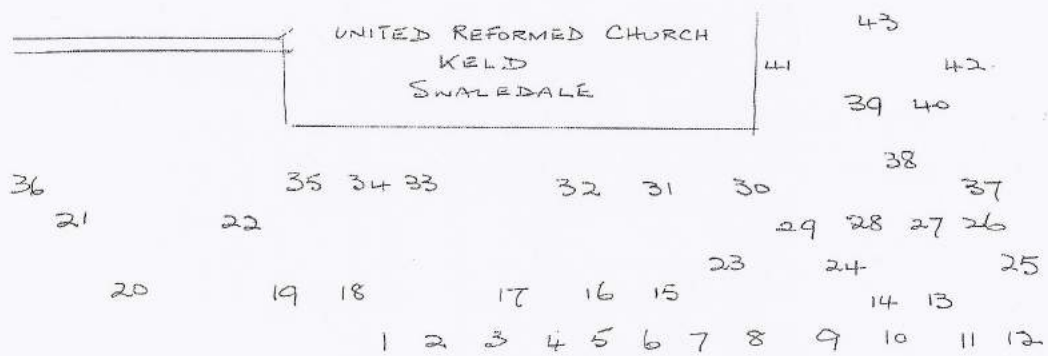 UNITED REFORMED CHURCH
KELD
SWALEDALE
43
41 42.
39 40
38
36 35 34 33 32 31 30 37
21 22 29 28 27 26
23 24 25
20 19 18 17 16 15 14 13
1 2 3 4 5 6 7 8 9 10 11 12